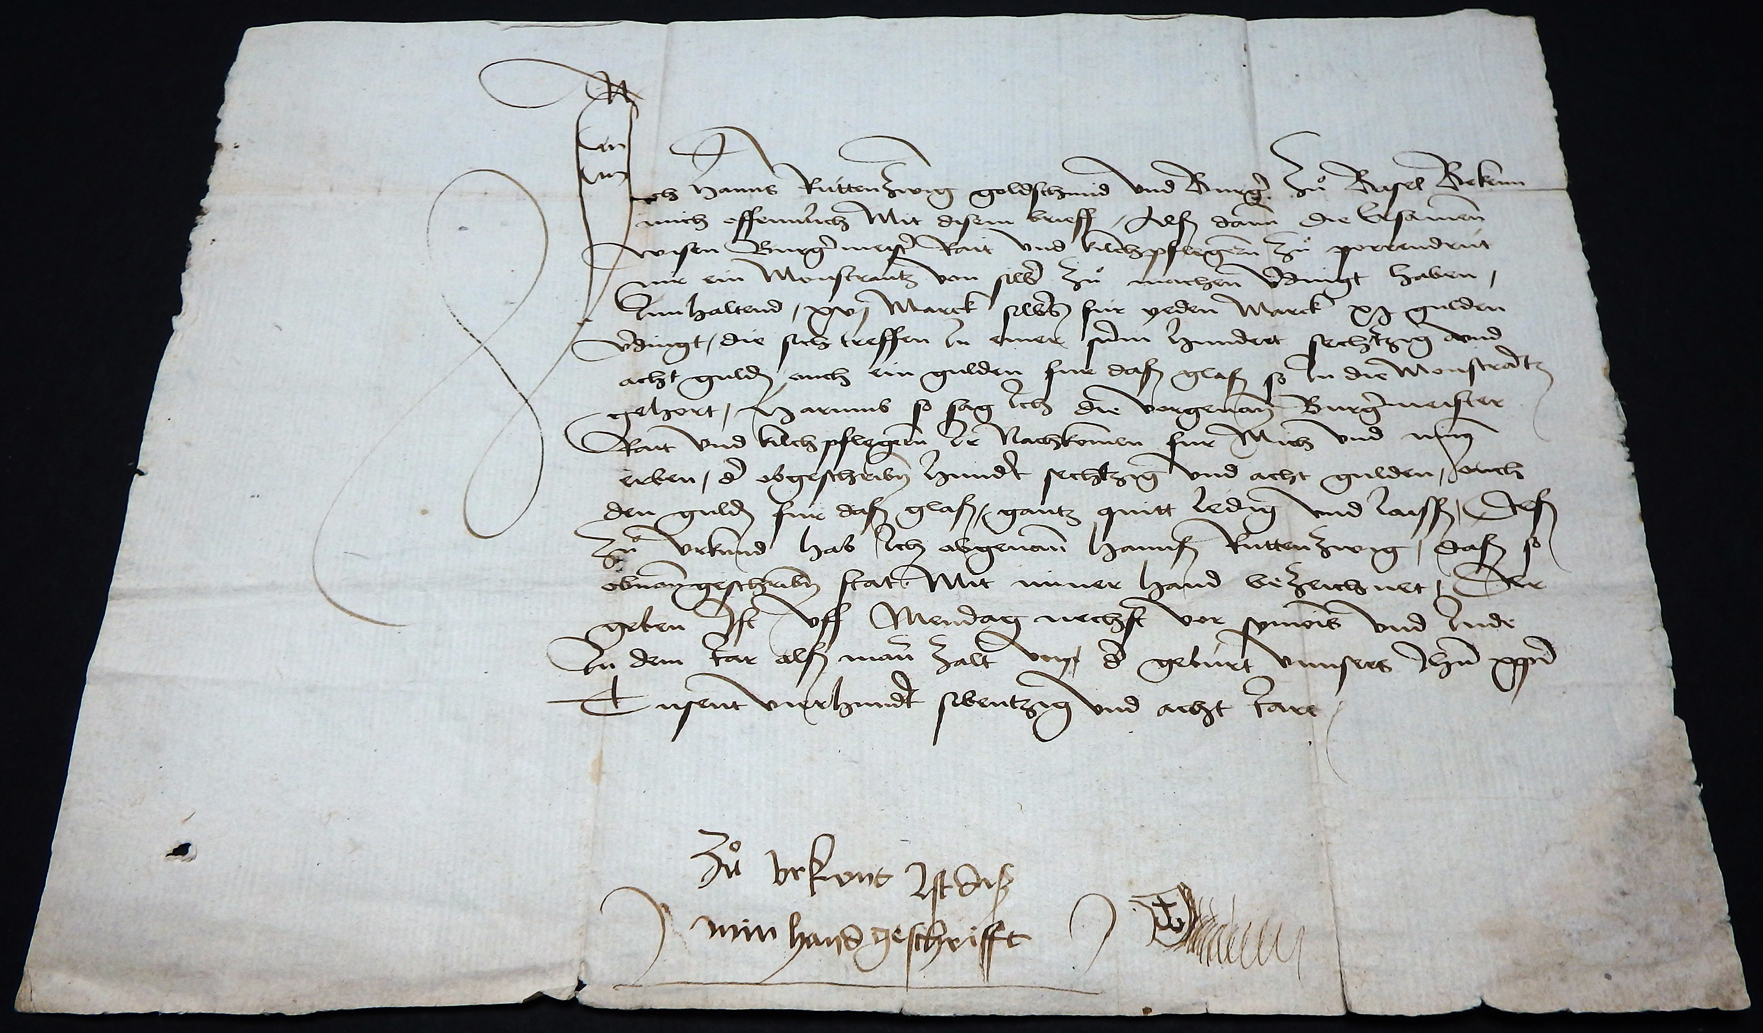 Ich Hanns Rútten Zwig goldschmid vnd Burgr̄ Zů Basel Bekenn
mich offennlich Mit disem brieff / Alß dann die Ersamen
wisen Burgr̄meistr̄ Rait vnd kilchpflegern̄ Zů porrendrút
mir ein Monstrantz von silbr̄ Zů machen v̄dingt haben /
Innhaltend / xvj Marck silbrs̄ fúr yeden Marck xj gulden
v̄dingt / die sich treffen In einer sum̄ hundert sechtzig vnd
acht guld̄ / ouch ein gulden fúr daß glaß so In die Monstrantz
gehort / Harumb so sag Ich die vorgenan̄ Burgr̄meister
Rait vnd kilchpflegern̄ Ir Nachkomen fúr Mich vnd min̄
erben / dr̄ obgeschribn̄ hundr̄t sechtzig vnd acht gulden / ouch
den guld̄ fúr daß glaß / gantz quitt ledig vnd laisß / Deß
Zů vrkund hab Ich obgenan̄t Hannß Rútten Zwig / daß so
obnan̄ geschribn̄ stat Mit miner hand beZeichnet / Der
geben Ist vff Mendag nechst vor symons vnd Jude
In dem Iar alß man Zalt von dr̄ gebúrt vnnsers Ihū xpī
Tusent vierhundr̄t sibentzig vnd acht Iare
Zů vrkont Ist diß
min hand geschrifft